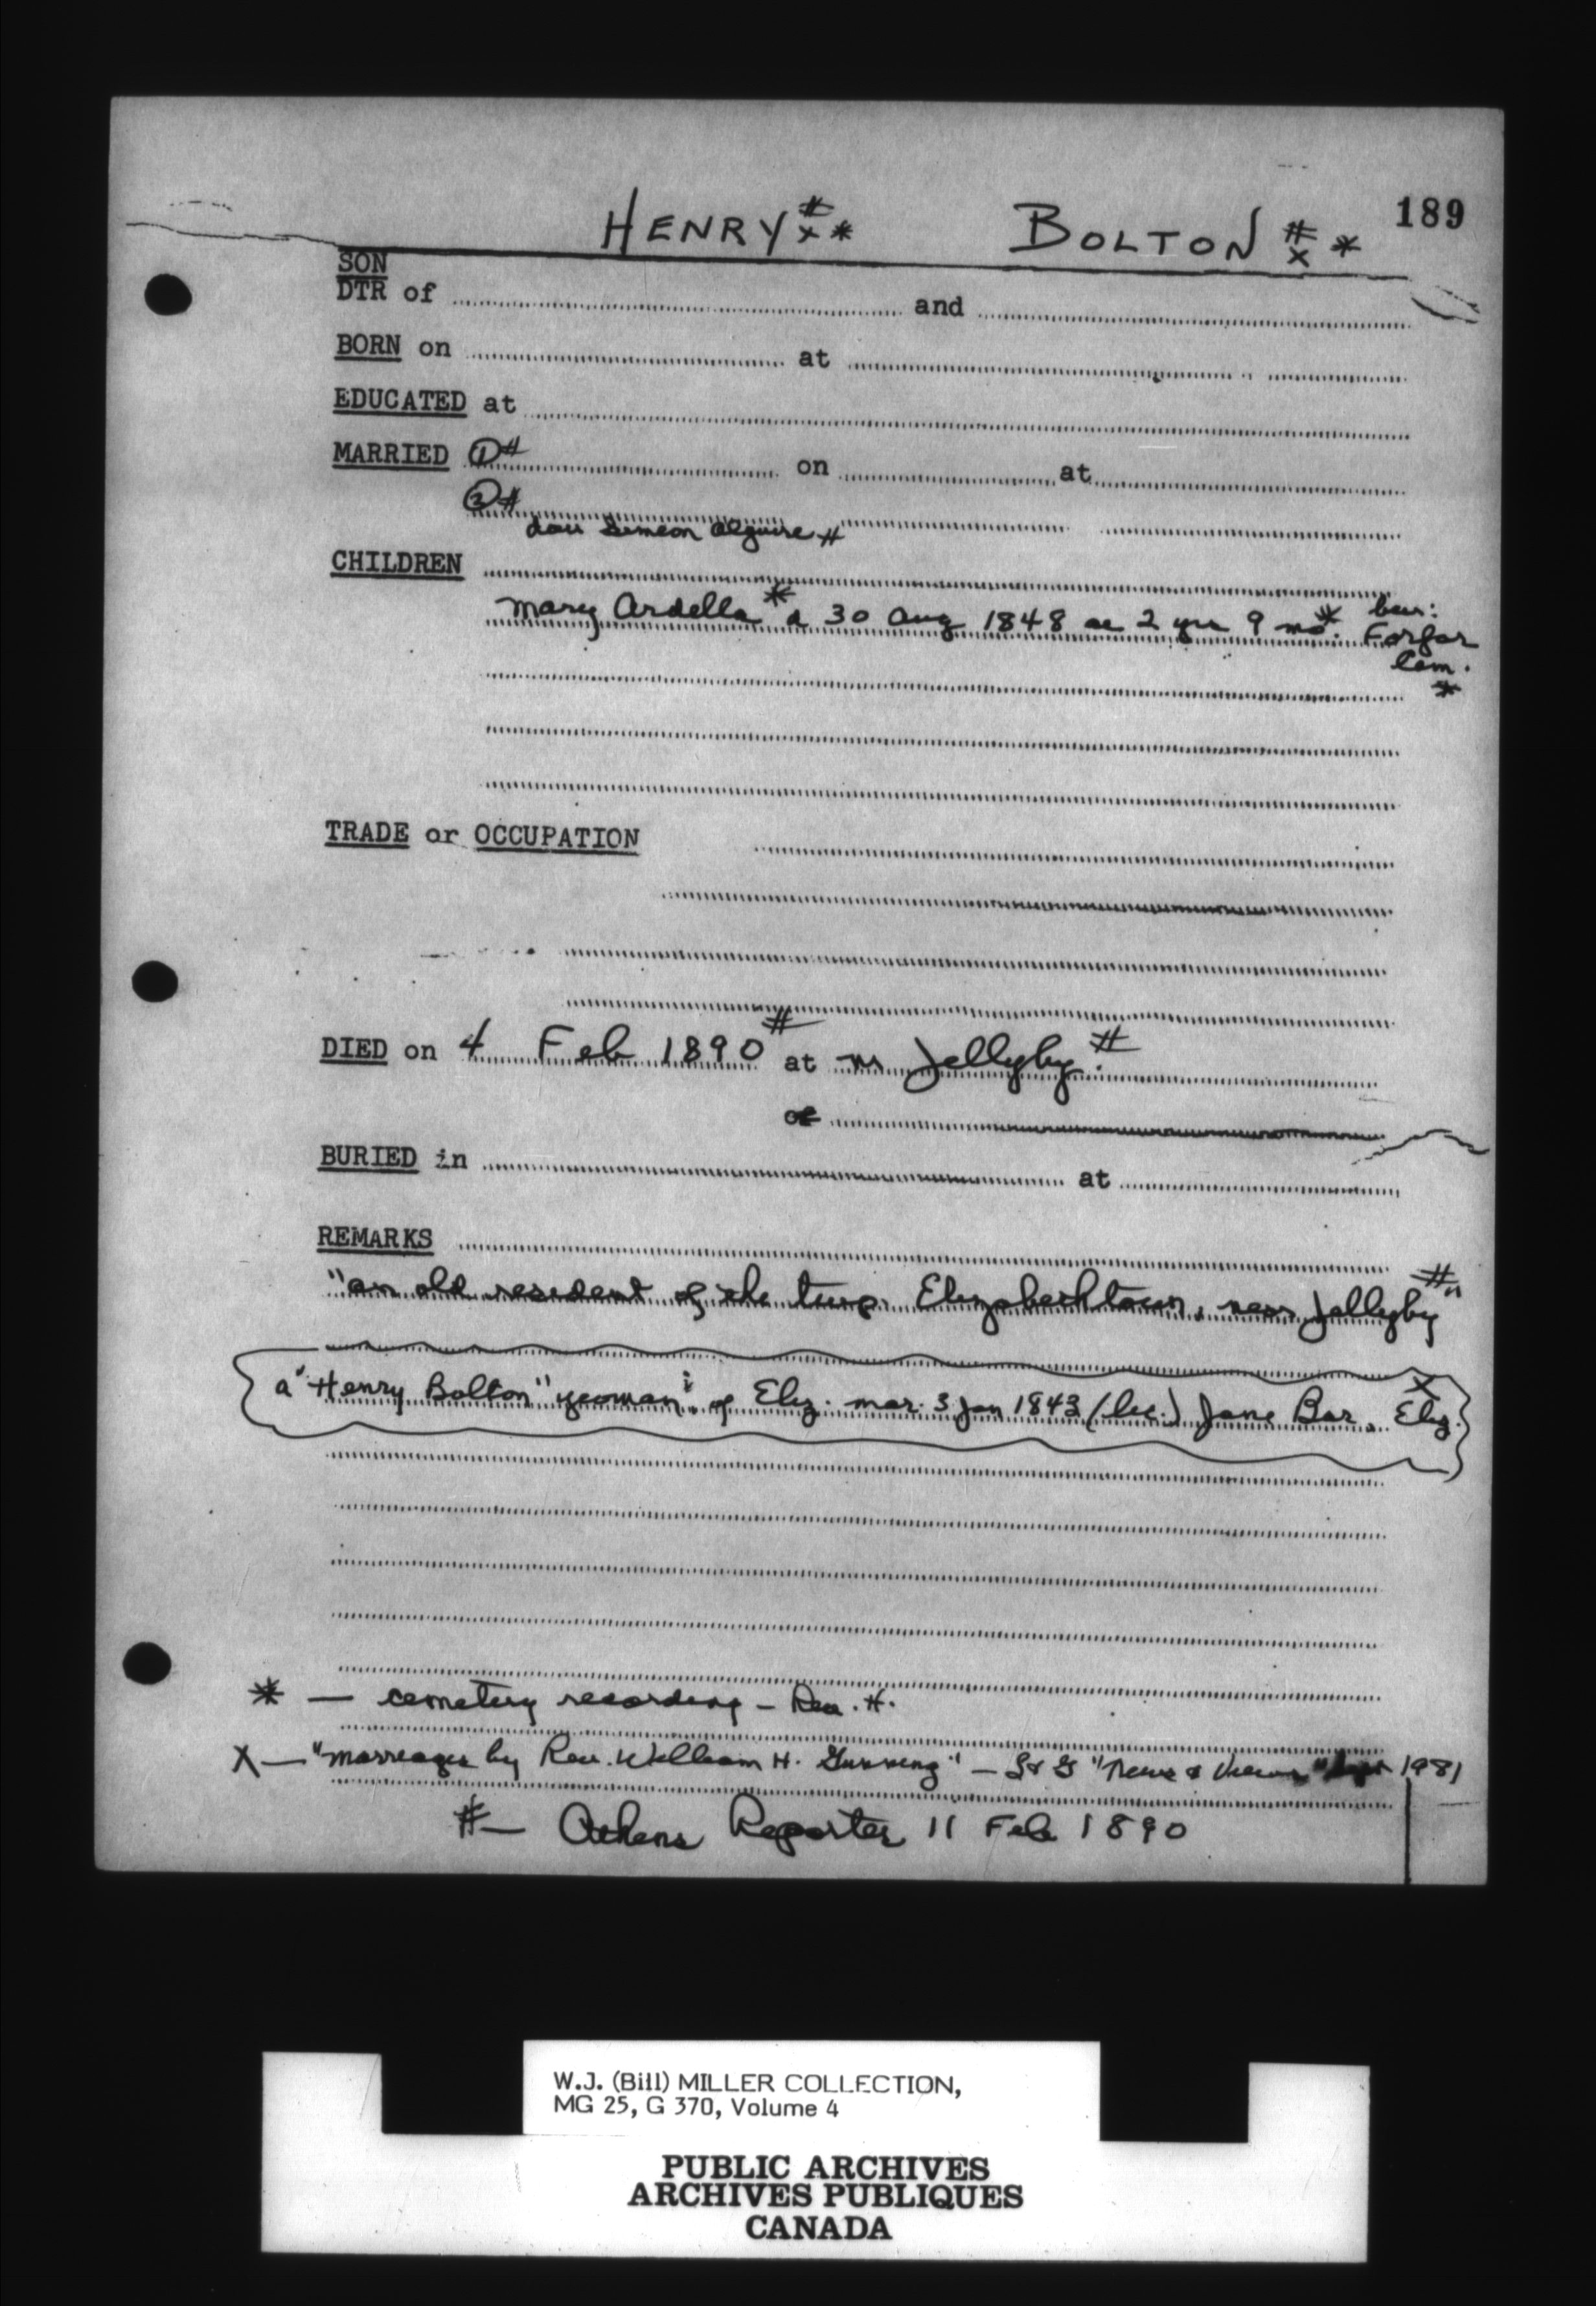 189
HENRY #x* BOLTON #x*
SON
DTR of and
BORN on at
EDUCATED at
MARRIED ①# on at
②#
dau Simeon Alguire #
CHILDREN
Mary Ardella * d 30 Aug 1848 ae 2 yrs 9 mo *. bur:
Forfar
Cem.
*
TRADE or OCCUPATION
DIED on 4 Feb 1890 # at nr Jellyby. #
of
BURIED in at
REMARKS
"an old resident of the twp. Elizabethtown, near Jellyby" #
a "Henry Bolton" yeoman, of Eliz. mar. 3 Jan 1843 (lic.) Jane Bar, Eliz. x
* — cemetery recording - Rev. H.
X — "Marriages by Rev. William H. " - L & G "News & Views" 1981
# — Athens Reporter 11 Feb 1890
W.J. (Bill) MILLER COLLECTION,
MG 25, G 370, Volume 4
PUBLIC ARCHIVES
ARCHIVES PUBLIQUES
CANADA